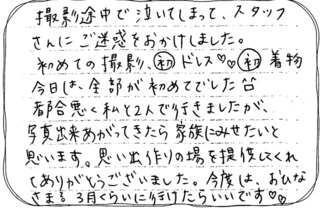 撮影途中で泣いてしまって、スタッフ
さんにご迷惑をおかけしました。
初めての撮影、㊞初ドレス♡♡初着物
今日は、全部が初めてでした
都合悪く私と2人で行きましたが、
写真出来あがってきたら家族にみせたいと
思います。思い出作りの場を提供してくれ
てありがとうございました。今度は、おひな
さま 3月ぐらいに行けたらいいです♡♡